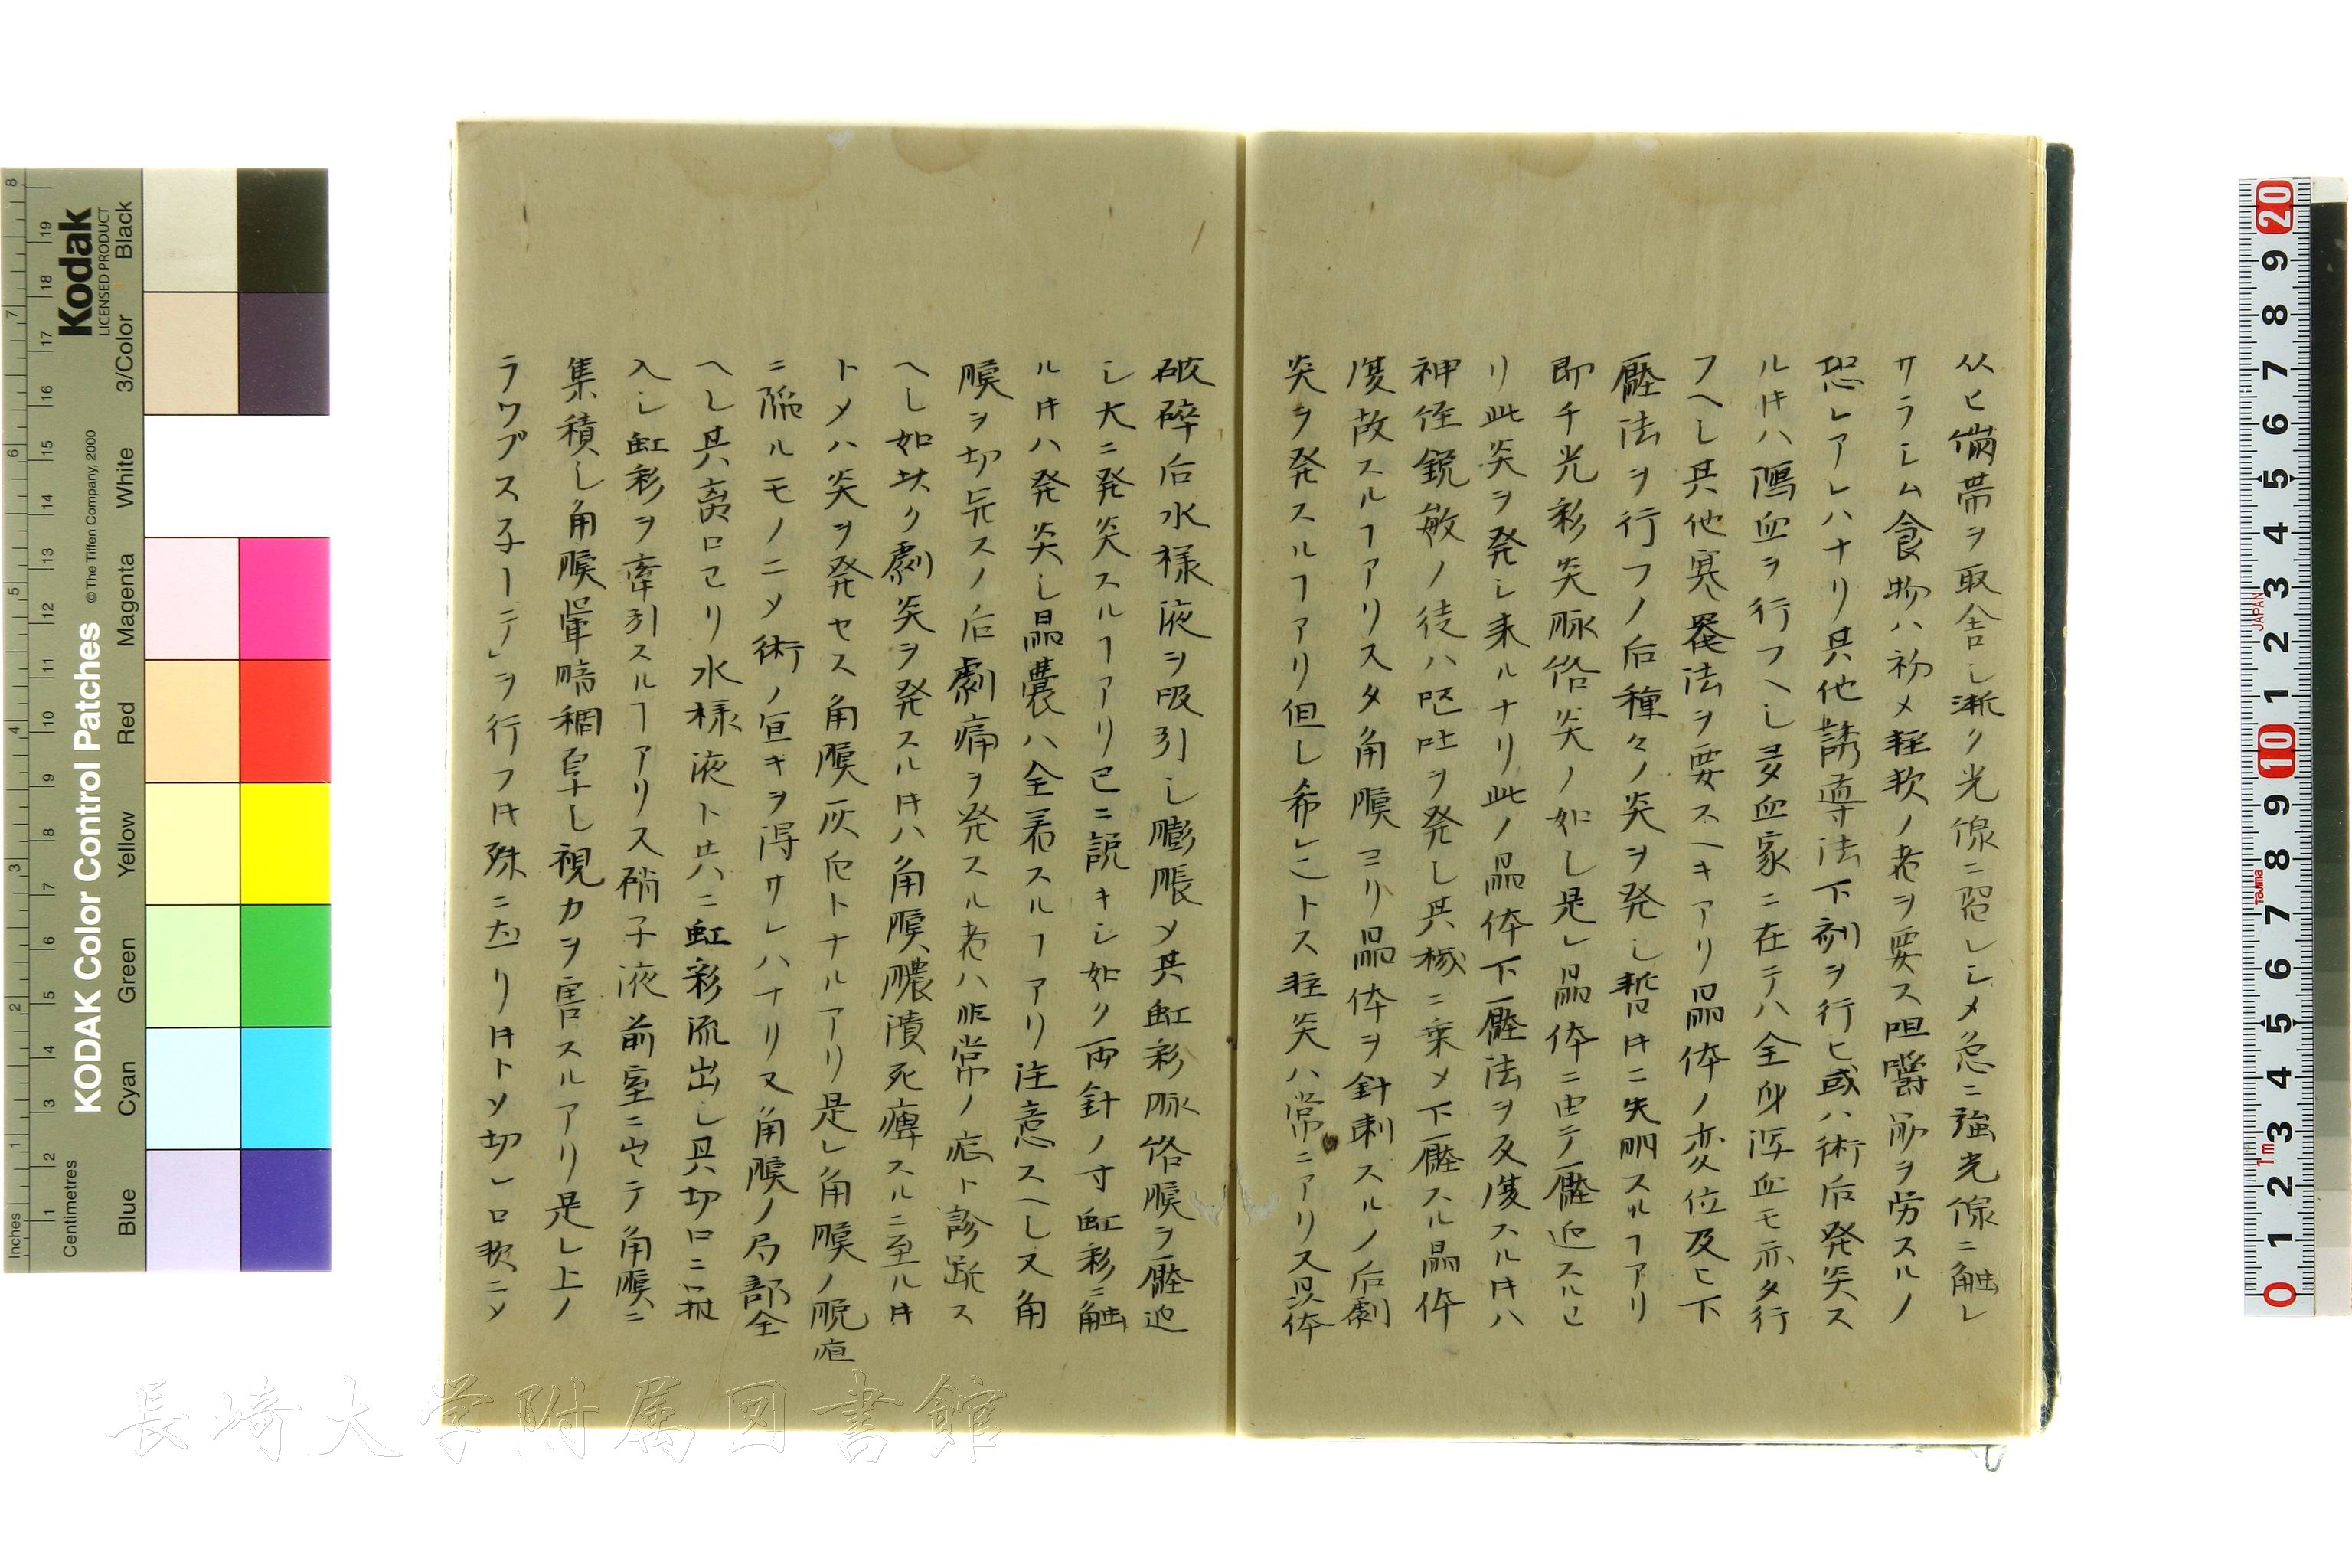 从ヒ繃帯ヲ取舎シ漸ク光線ニ照レシメ急ニ強光線ニ触レ
サラシム食物ハ初メ軽軟ノ者ヲ要ス咀嚼筋ヲ労スルノ
恐レアレハナリ其他誘導法下剤ヲ行ヒ或ハ術后発炎ス
ルキハ瀉血ヲ行フヘシ多血家ニ在テハ全身瀉血モ亦タ行
フヘし其他寒罨法ヲ要スヘキアリ晶体ノ変位及ヒ下
壓法ヲ行フノ后種々ノ炎ヲ発シ暫時ニ失明スルヿアリ
即チ光彩炎脈絡炎ノ如し是レ晶体ニ由テ壓迫スルヒ
リ此炎ヲ発シ来ルナリ此ノ晶体下壓法ヲ反復スルキハ
神経鋭敏ノ徒ハ嘔吐ヲ発し其機ニ乗メ下壓スル晶体
復故スルヿアリスタ角膜ヨリ晶体ヲ針刺スルノ后劇
炎ヲ発スルヿアリ但し希レニトス軽炎ハ常ニアリ又晶体
破碎后水様液ヲ吸引シ膨脹メ其虹彩脈絡膜ヲ壓迫
シ大ニ発炎スルヿアリ已ニ説キシ如ク両針ノ寸虹彩ニ触
ルキハ発炎し晶嚢ハ全着スルヿアリ注意スヘし又角
膜ヲ切除スノ后劇痛ヲ発スル者ハ非常ノ症ト診スス
ヘし如此ク劇炎ヲ発スルキハ角膜膿潰死瘴スルニ至ルキ
トメハ炎ヲ発セス角膜灰色トナルアリ是レ角膜ノ脱疽
ニ陥ルモノニメ術ノ宜キヲ得サレハナリ又角膜ノ局部全
ヘし其創口ヨリ水様液ト共ニ虹彩流出し其切口ニ箝
入し虹彩ヲ牽引スルヿアリス硝子液前室ニ出テ角膜ニ
集積し角膜暈暗稠厚し視力ヲ害スルアリ是レ上ノ
ラワブス子ーデ」ヲ行フキ殊ニ然リキトソ切レ口軟ニメ
KODAK Color Control Patches
© The Tiffen Company, 2000
Kodak
LICENSED PRODUCT
Inches
Centimetres
Blue Cyan Green Yellow Red Magenta White 3/Color Black
JAPAN
Tajima
長崎大学附属図書館